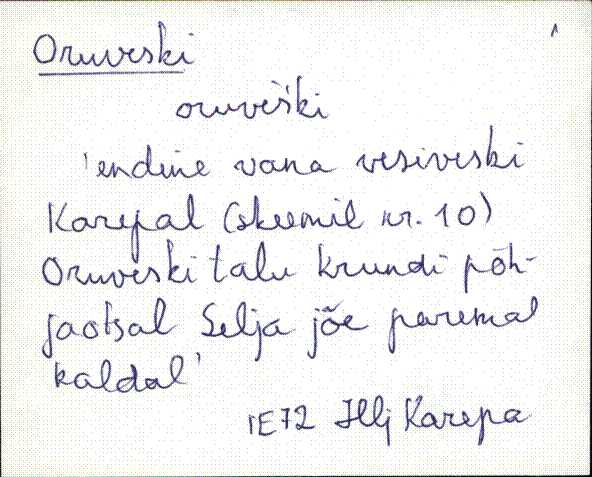 Oruveski
oruveški
'endine vana vesiveski
Karepal (skeemil nr. 10)
Oruveski talu krundi põh-
jaotsal Selja jõe paremal
kaldal'
IE72 Hlj Karepa